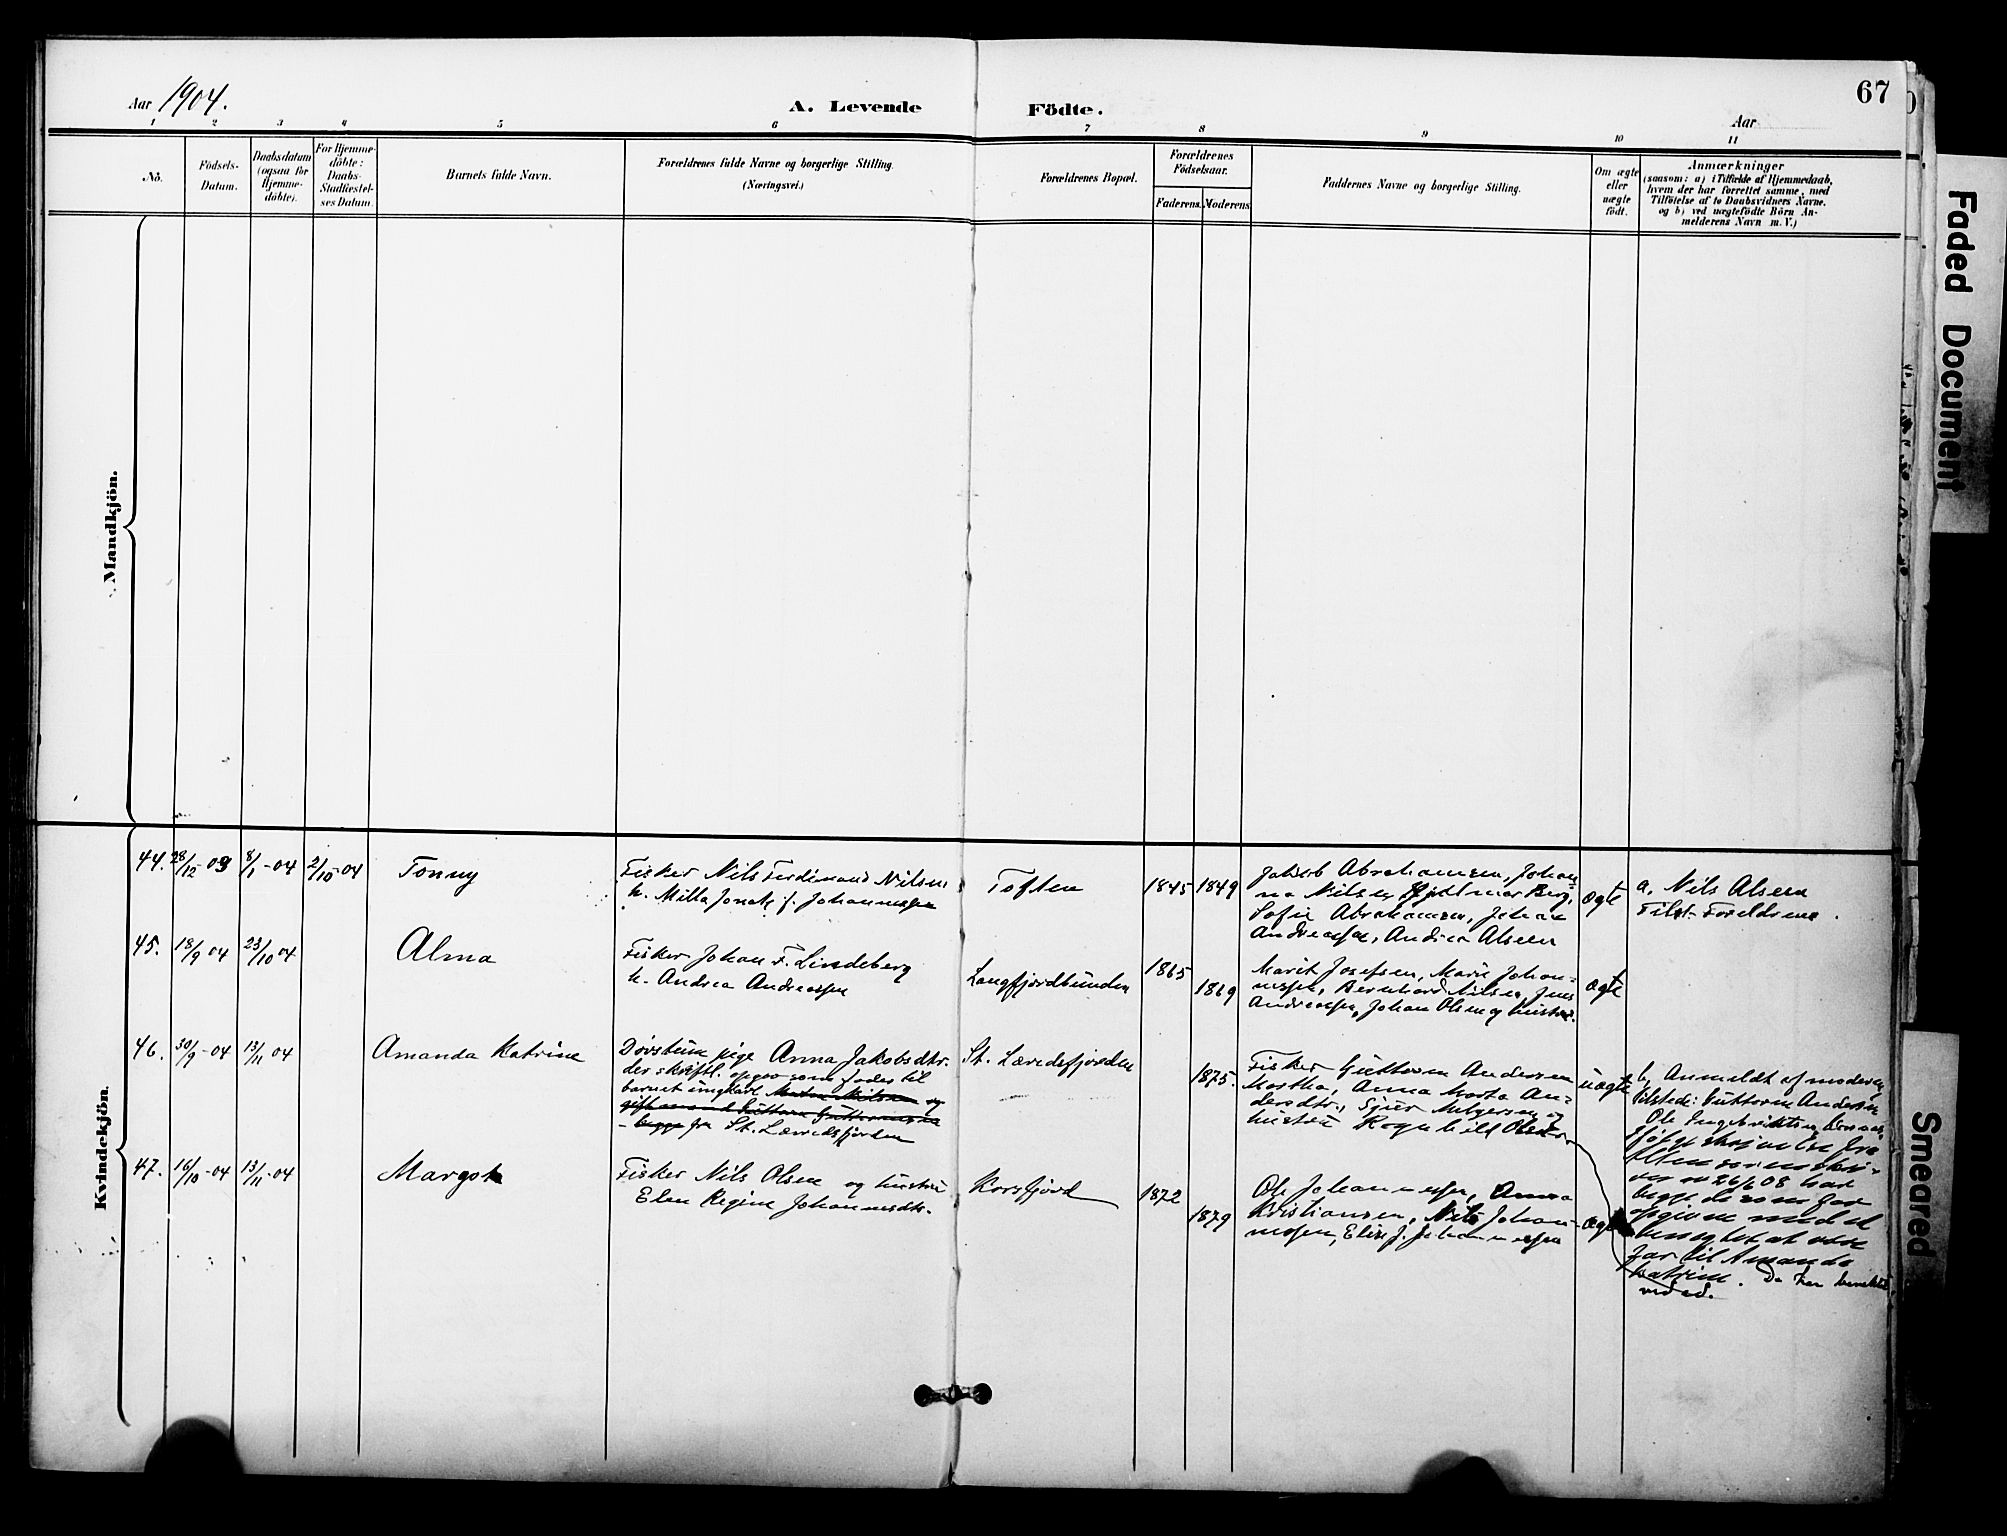 Aar 1904.
A. Levende Födte.
67
Aar
1 2 3 4 5 6 7 8 9 10 11
No.
Födsels-
Datum.
Daabsdatum
(ogsaa for
Hjemme-
döbte).
For Hjemme-
döbte:
Daabs-
Stadfæstel-
ses Datum.
Barnets fulde Navn.
Forældrenes fulde Navne og borgerlige Stilling.
(Næringsvei.)
Forældrenes Bopæl.
Forældrenes
Födselsaar.
Faderens. Moderens.
Faddernes Navne og borgerlige Stilling.
Om ægte
eller
uægte
födt.
Anmærkninger
(saasom: a) i Tilfælde af Hjemmedaab,
hvem der har forrettet samme, med
Tilföielse af to Daabsvidners Navne.
og b) ved uægtefödte Börn An-
melderens Navn m. V.)
Mandkjön.
Kvindekjön.
44.
28/12-03
8/1-04
2/10-04
Tonny
Fisker Nils Ferdinand Nilsen
h. Milla Jonah f. Johannessen
Toften
1845
1849
Jakob Abrahamsen, Johan-
na Nilsen, Hjalmar Berg,
Sofie Abrahamsen, Johan
Andreassen, Andrea Alseen
ægte
a. Nils Alseen
Tilst. Foreldrene.
45.
18/9 04
23/10 04
Alma
Fisker Johan F. Lindeberg
h. Andrea Andreassen
Langfjordbunden
1865
1869
Marit Josefsen, Marie Johan-
nessen, Bernhard Nilsen, Jens
Andreassen, Johan Olsen og hustru.
ægte
46.
30/9-04
13/11 04
Amanda Katrine
Døvstum pige Anna Jakobsdtr.
der skriftl. opgav som fader til
barnet ungkarl
begge fra St. Lærredsfjorden
St. Lærredsfjorden
1875.
Fisker Guttorm Andersen
Martha, Anna Marta An-
dersdtr.,
hustru Ragnhild Olsen
uægte
b, Anmeldt af moderen
Tilstede: Guttorm Andersen
Ole Ingebriktsen
26/6 08 har
begge de som far
opgivne
far til Amanda
Katrine. De har benektet
ved ed.
47.
16/10-04
13/11-04
Margot
Fisker Nils Olsen og hustru
Elen Regine Johannesdtr.
Korsfjord
1872
1879
Ole Johannessen, Anna
Kristiansen, Nils Johan-
nessen, Elise J. Johannessen
ægte
Faded Document
Smeared